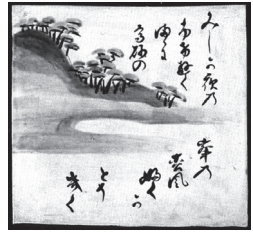 みしか夜の
ふけ行く
まゝに
高砂の
峯の
松風
吹くか
とそ
きく